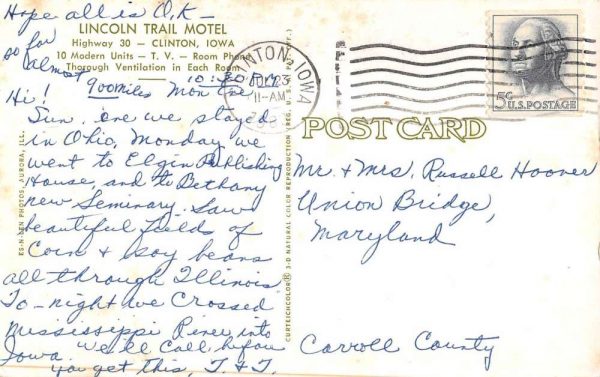 Hope all is O.K –
so far
almost
900 miles
LINCOLN TRAIL MOTEL
Highway 30 — CLINTON, IOWA
10 Modern Units – T. V. – Room Phone
Thorough Ventilation in Each Room
10:30 P.M.
Mon. Eve
Hi!
Sun. eve we stayed
in Ohio, Monday we
went to Elgin Publishing
House, and to Bethany
new Seminary. Saw
beautiful fields of
Corn & soy beans
all through Illinois
To-night we Crossed
Mississippi River into
Iowa. We'll call before
you get this, T & T.
ES-N-LEN PHOTOS, AURORA, ILL.
CURTEICHCOLOR® 3-D NATURAL COLOR REPRODUCTION (REG. U.S.A. PAT. OFF.)
CLINTON, IOWA
23
11-AM
5¢
U.S. POSTAGE
POST CARD
Mr. & Mrs. Russell Hoover
Union Bridge,
Maryland
Carroll County